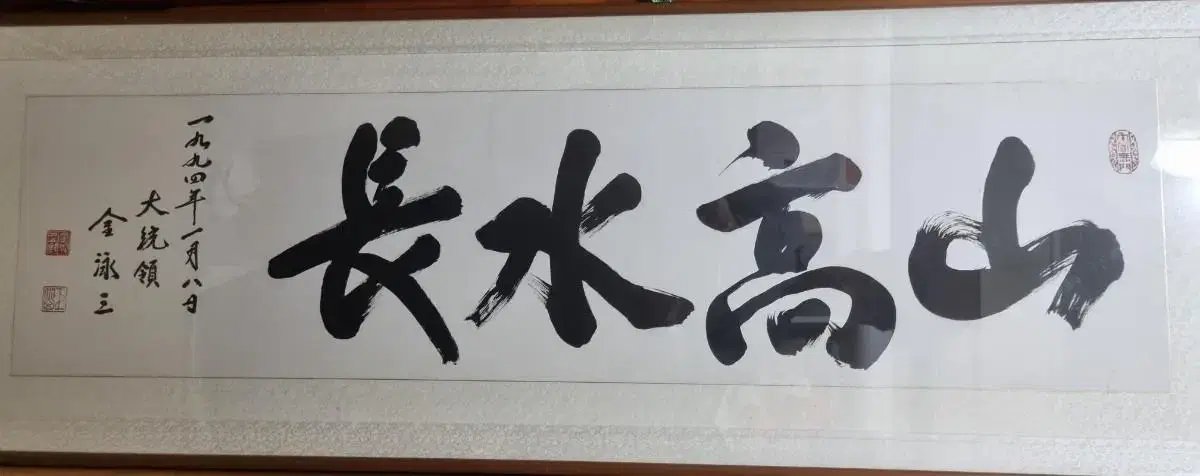 山高水長
一九九四年一月八日
大統領
金泳三